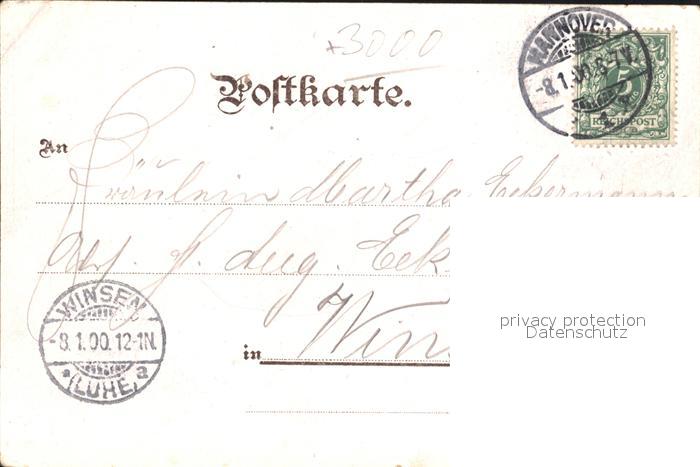 3000
Postkarte.
HANNOVER
-8.1.00.6-7V.
5
REICHSPOST
An
Fräulein Martha Eckermann
Adr. H. Aug. Eck
WINSEN
-8.1.00.12-1N.
* (LUHE) a
in Win
privacy protection
Datenschutz